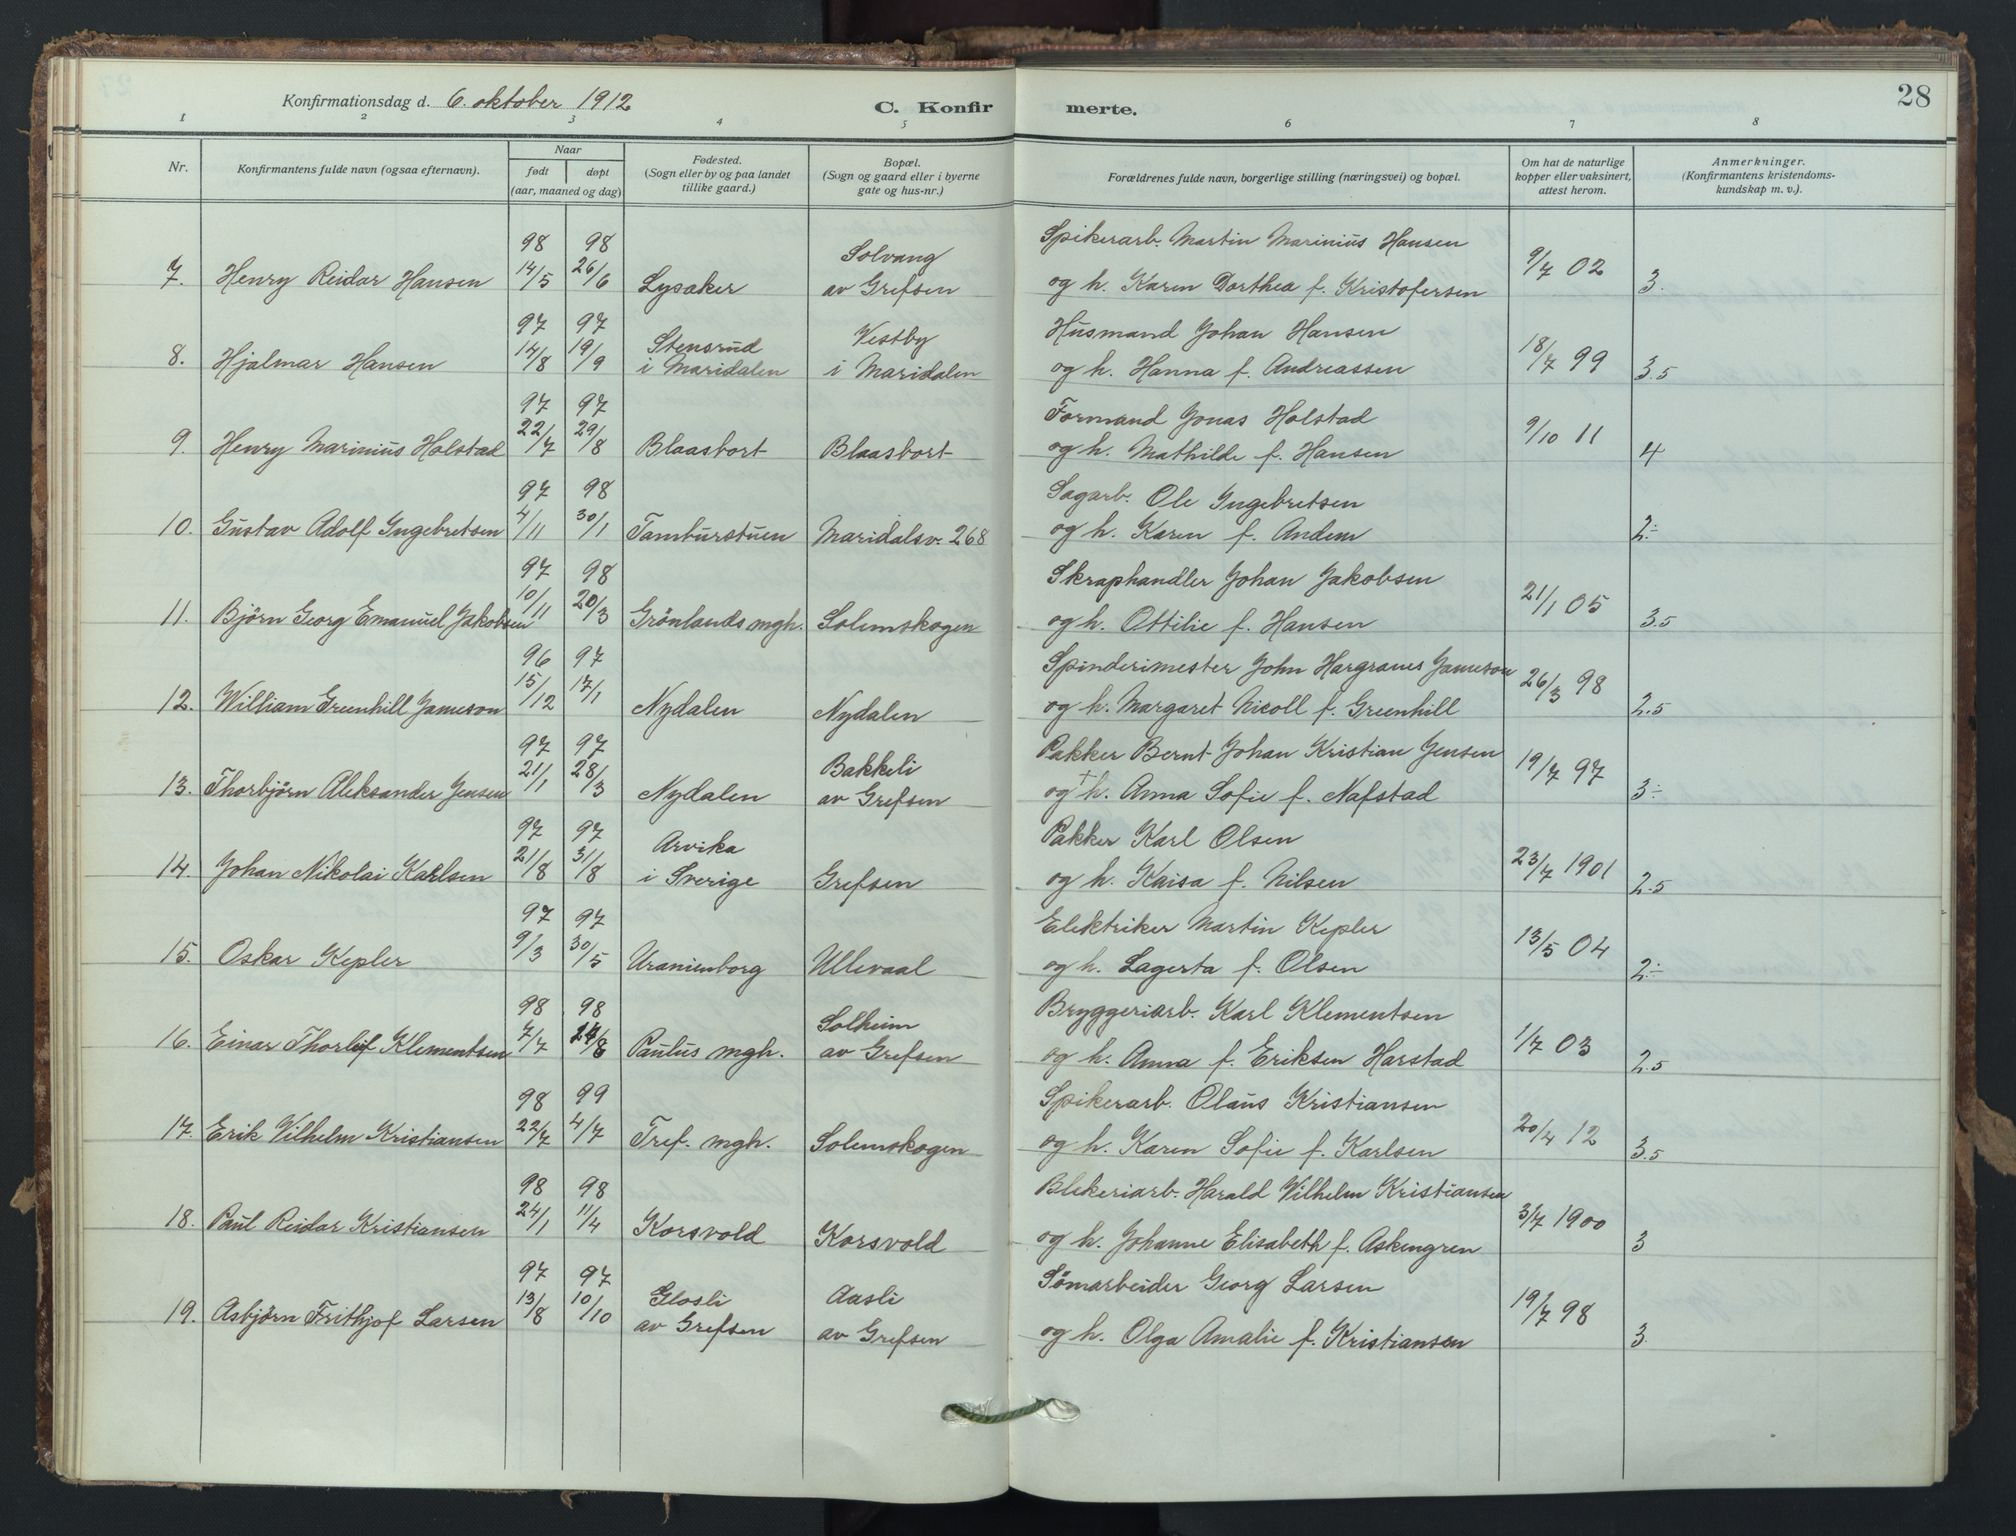 28
Konfirmationsdag d. 6. oktober 1912
C. Konfir merte.
1 2 3 4 5 6 7 8
Nr. Konfirmantens fulde navn (ogsaa efternavn). Naar født døpt (aar, maaned og dag) Fødested. (Sogn eller by og paa landet tillike gaard.) Bopæl. (Sogn og gaard eller i byerne gate og hus-nr.) Forældrenes fulde navn, borgerlige stilling (næringsvei) og bopæl. Om hat de naturlige kopper eller vaksinert, attest herom. Anmerkninger. (Konfirmantens kristendomskundskap m. v.).
98 98 Solvang Spikerarb. Martin Marinius Hansen
7. Henry Reidar Hansen 14/5 26/6 Lysaker av Grefsen og h. Karen Dorthea f. Kristofersen 9/7 02 3.
97 97 Stensrud Vestby Husmand Johan Hansen
8. Hjalmar Hansen 14/8 19/9 i Maridalen i Maridalen og h. Hanna f. Andreassen 18/7 99 3.5
97 97 Formand Jonas Holstad
9. Henry Marinius Holstad 22/7 29/8 Blaasbort Blaasbort og h. Mathilde f. Hansen 9/10 11 4
97 98 Sagarb. Ole Ingebretsen
10. Gustav Adolf Ingebretsen 4/11 30/1 Tamburstuen Maridalsv. 268 og h. Karen f. Andem 2:-
97 98 Skraphandler Johan Jakobsen
11. Björn Georg Emanuel Jakobsen 10/11 20/3 Grönlands mgh. Solemskogen og h. Ottilie f. Hansen 21/1 05 3.5
96 97 Spinderimester John Hargranes Jameson
12. William Greenhill Jameson 15/12 17/1 Nydalen Nydalen og h. Margaret Nicoll f. Greenhill 26/3 98 2.5
97 97 Bakkeli Pakker Bernt Johan Kristian Jensen
13. Thorbjörn Aleksander Jensen 21/1 28/3 Nydalen av Grefsen og † h. Anna Sofie f. Nafstad 19/7 97 3:-
97 97 Arvika Pakker Karl Olsen
14. Johan Nikolai Karlsen 21/8 31/8 i Sverige Grefsen og h. Kaisa f. Nilsen 23/7 1901 2.5
97 97 Elektriker Martin Kepler
15. Oskar Kepler 9/3 30/5 Uranienborg Ullevaal og h. Lagerta f. Olsen 13/5 04 2:-
98 98 Solheim Bryggeriarb. Karl Klementsen
16. Einar Thorleif Klementsen 7/7 24/8 Paulus mgh. av Grefsen og h. Anna f. Eriksen Harstad 1/7 03 2.5
98 99 Spikerarb. Olaus Kristiansen
17. Erik Vilhelm Kristiansen 22/7 4/7 Tref. mgh. Solemskogen og h. Karen Sofie f. Karlsen 20/4 12 3.5
98 98 Blekeriarb. Harald Vilhelm Kristiansen
18. Paul Reidar Kristiansen 24/1 11/4 Korsvold Korsvold og h. Johanne Elisabeth f. Askengren 3/7 1900 3
97 97 Glosli Aasli Sömarbeider Georg Larsen
19. Asbjörn Frithjof Larsen 13/8 10/10 av Grefsen av Grefsen og h. Olga Amalie f. Kristiansen 19/7 98 3.